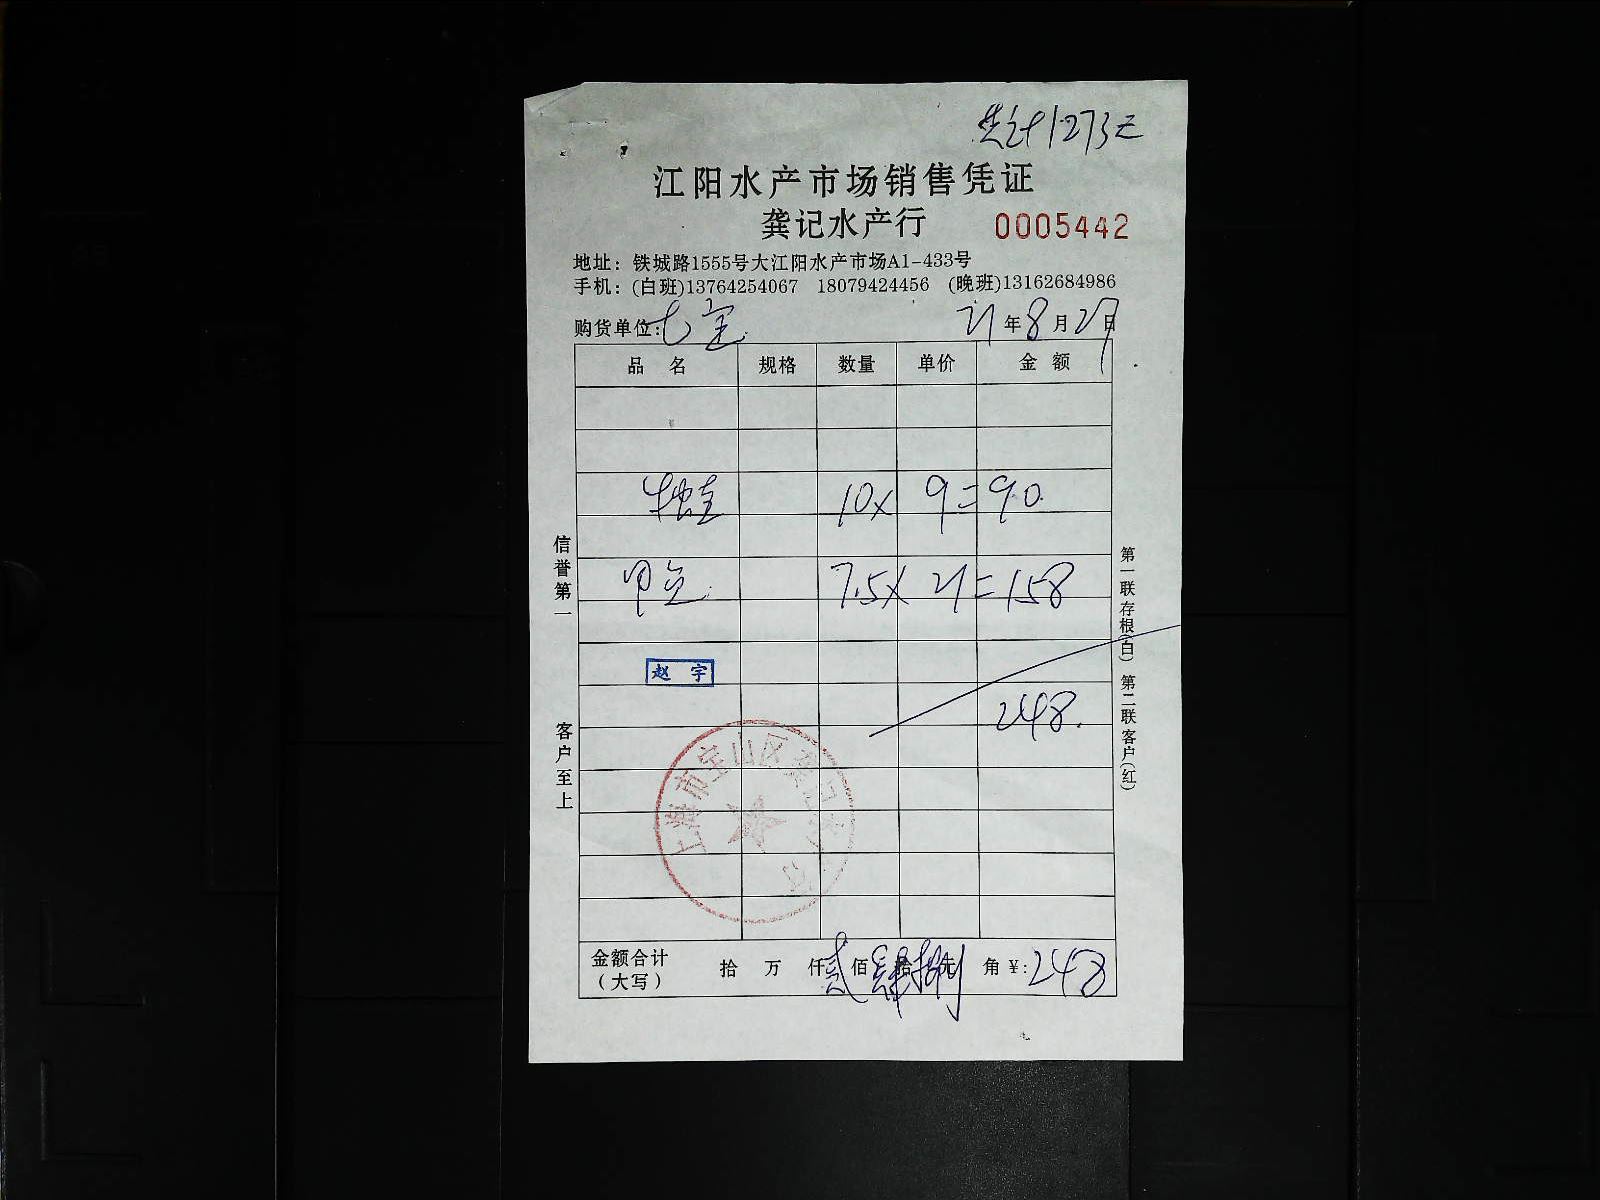 共计1273元
江阳水产市场销售凭证
龚记水产行 0005442
地址：铁城路1555号大江阳水产市场A1-433号
手机：(白班)13764254067 18079424456 (晚班)13162684986
购货单位：七宝 21年8月27日
品名 规格 数量 单价 金额
牛蛙 10× 9=90
甲鱼 7.5× 21=158
赵宇
248.
上海市宝山区龚记水产行
金额合计 拾 万 仟 贰佰肆拾捌元 角 ¥：248
（大写）
信誉第一 客户至上
第一联存根（白） 第二联客户（红）